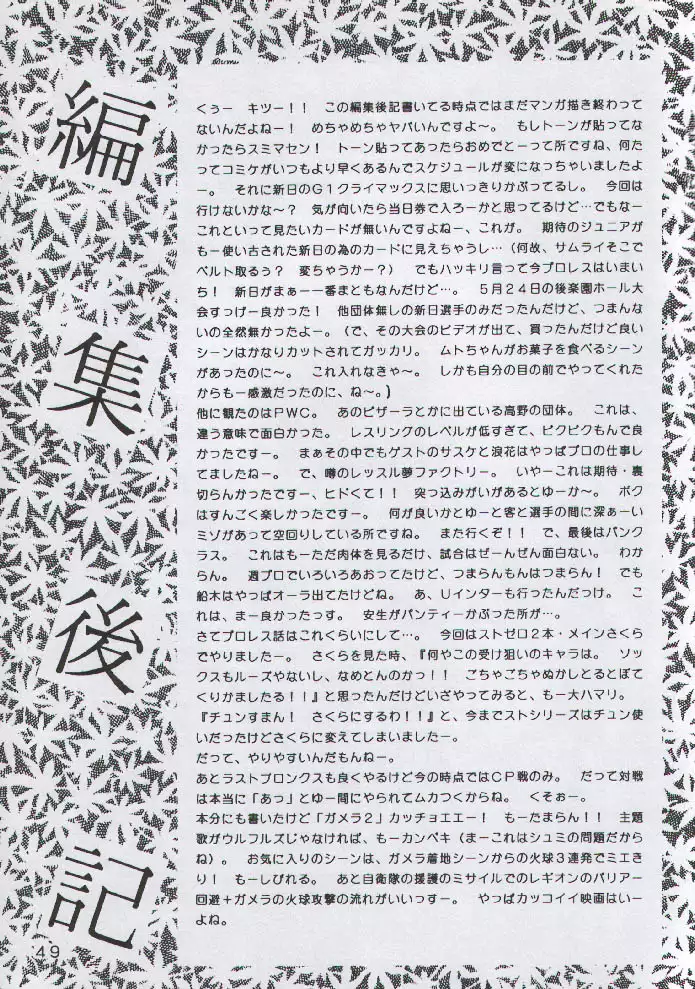 編集後記
くぅー　キツー！！　この編集後記書いてる時点ではまだマンガ描き終わって
ないんだよねー！　めちゃめちゃヤバいんですよ〜。　もしトーンが貼ってな
かったらスミマセン！　トーン貼ってあったらおめでとーって所ですね、何た
ってコミケがいつもより早くあるんでスケジュールが変になっちゃいましたよ
ー。　それに新日のＧ１クライマックスに思いっきりかぶってるし。　今回は
行けないかな〜？　気が向いたら当日券で入ろーかと思ってるけど…でもなー
これといって見たいカードが無いんですよねー、これが。　期待のジュニアが
もー使い古された新日の為のカードに見えちゃうし…（何故、サムライそこで
ベルト取るぅ？　変ちゃうかー？）　でもハッキリ言って今プロレスはいまい
ち！　新日がまぁーー番まともなんだけど…。　５月２４日の後楽園ホール大
会すっげー良かった！　他団体無しの新日選手のみだったんだけど、つまんな
いの全然無かったよー。（で、その大会のビデオが出て、買ったんだけど良い
シーンはかなりカットされてガッカリ。　ムトちゃんがお菓子を食べるシーン
があったのに〜。　これ入れなきゃ〜。　しかも自分の目の前でやってくれた
からもー感激だったのに、ね〜。）
他に観たのはＰＷＣ。　あのピザーラとかに出ている高野の団体。　これは、
違う意味で面白かった。　レスリングのレベルが低すぎて、ピクピクもんで良
かったですー。　まぁその中でもゲストのサスケと浪花はやっぱプロの仕事し
てましたねー。　で、噂のレッスル夢ファクトリー。　いやーこれは期待・裏
切らんかったですー、ヒドくて！！　突っ込みがいがあるとゆーか〜。　ボク
はすんごく楽しかったですー。　何が良いかとゆーと客と選手の間に深ぁーい
ミゾがあって空回りしている所ですね。　また行くぞ！！　で、最後はパンク
ラス。　これはもーただ肉体を見るだけ、試合はぜーんぜん面白ない。　わか
らん。　週プロでいろいろあおってたけど、つまらんもんはつまらん！　でも
船木はやっぱオーラ出てたけどね。　あ、Ｕインターも行ったんだっけ。　こ
れは、まー良かったっす。　安生がパンティーかぶった所が…。
さてプロレス話はこれくらいにして…。　今回はストゼロ２本・メインさくら
でやりましたー。　さくらを見た時、『何やこの受け狙いのキャラは。　ソッ
クスもルーズやないし、なめとんのかっ！！　ごちゃごちゃぬかしとるとぼて
くりかましたる！！』と思ったんだけどいざやってみると、もー大ハマリ。
『チュンすまん！　さくらにするわ！！』と、今までストシリーズはチュン使
いだったけどさくらに変えてしまいましたー。
だって、やりやすいんだもんねー。
あとラストブロンクスも良くやるけど今の時点ではＣＰ戦のみ。　だって対戦
は本当に「あっ」とゆー間にやられてムカつくからね。　くそぉー。
本分にも書いたけど「ガメラ２」カッチョエエー！　もーたまらん！！　主題
歌がウルフルズじゃなければ、もーカンペキ（まーこれはシュミの問題だから
ね）。　お気に入りのシーンは、ガメラ着地シーンからの火球３連発でミエき
り！　もーしびれる。　あと自衛隊の援護のミサイルでのレギオンのバリアー
回遊＋ガメラの火球攻撃の流れがいいっすー。　やっぱカッコイイ映画はいー
よね。
49